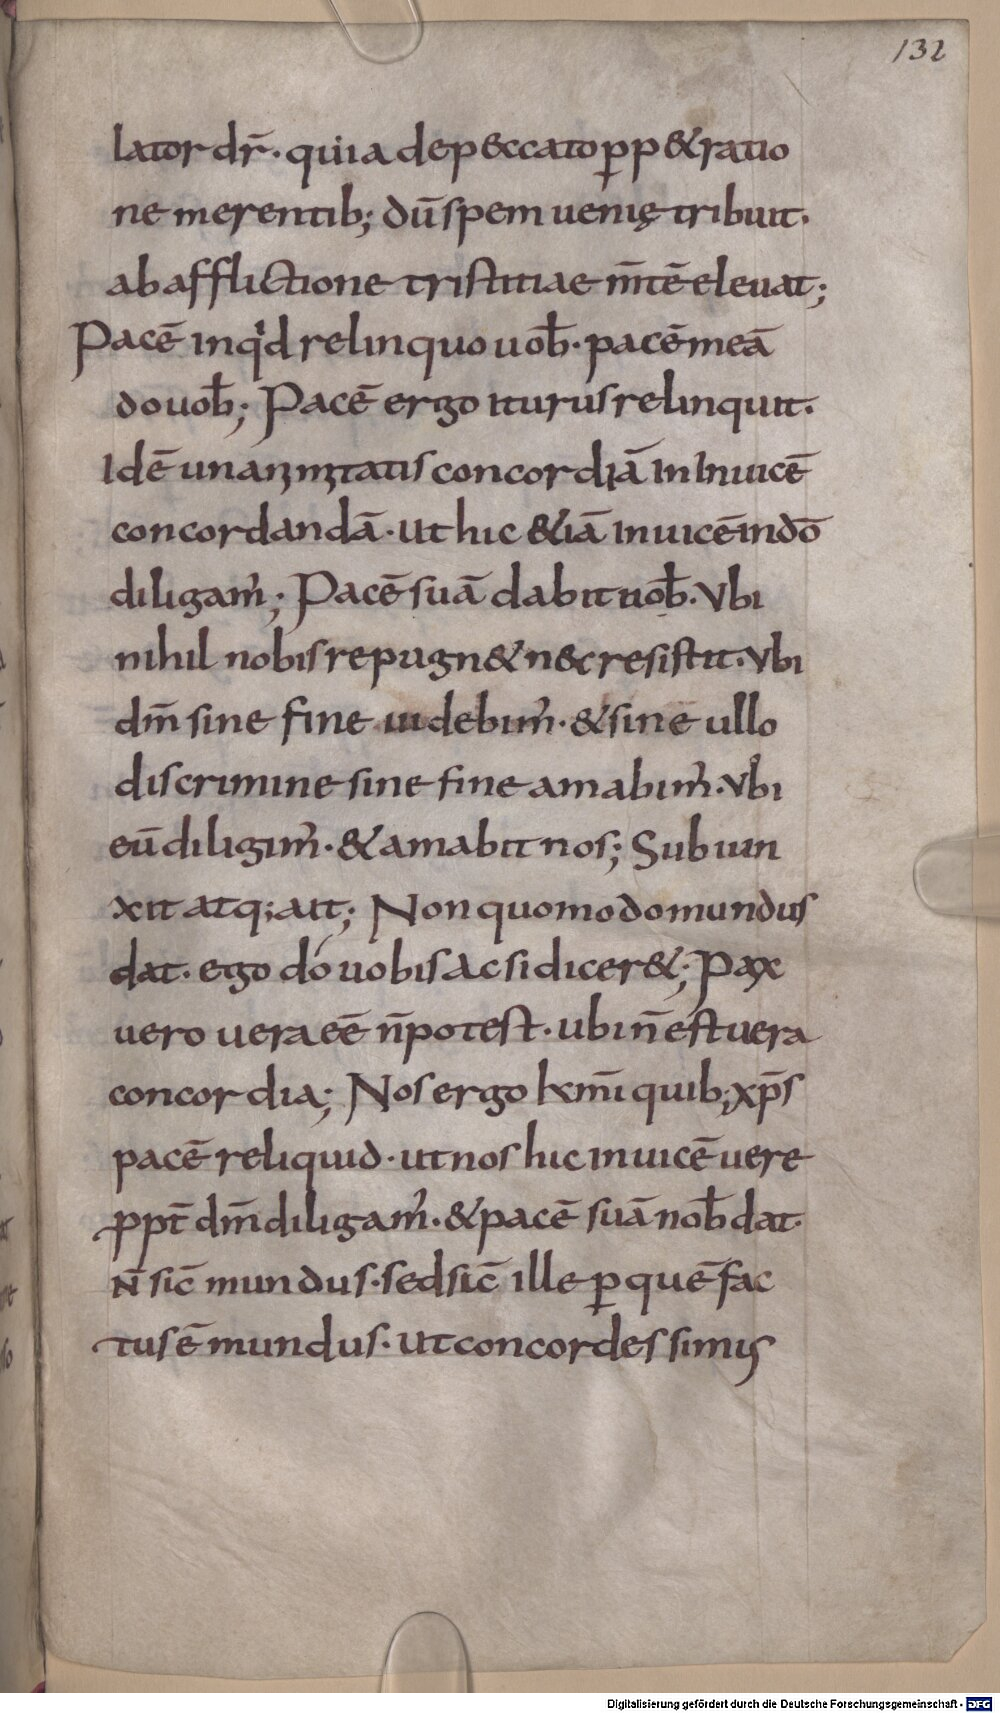 132
lator dr̄· quia de p&ccato ꝑp&ratio
ne merentib; dū spem uenię tribuit·
ab afflictione tristitiae m̄tē eleuat;
Pacē inqͥd relinquo uob̄· pacē meā
do uob̄; Pacē ergo iturus relinquit·
Idē unanimitatis concordiā in inuicē
concordandā· ut hic &iā inuicē indō
diligam᾽; Pacē suā dabit nob̄· Vbi
nihil nobis repugn& n&c resistit· Vbi
dm̄ sine fine uidebim᾽· & sine ullo
discrimine sine fine amabim᾽· Vbi
eū diligim᾽· & amabit nos; Subiun
xit atq; ait; Non quomodo mundus
dat· ego dó uobis ac si dicer&; Pax
uero uera eē n̄ potest· ubi n̄ est uera
concordia; Nos ergo kxm̄i quib; xp̄s
pacē reliquid· ut nos hic inuicē uere
ꝓpt̄ dm̄ diligam᾽· & pacē suā nob̄ dat·
N̄ sic̄ mundus· sed sic̄ ille ꝑ quē fac
tus ē mundus· ut concordes simus
Digitalisierung gefördert durch die Deutsche Forschungsgemeinschaft - DFG